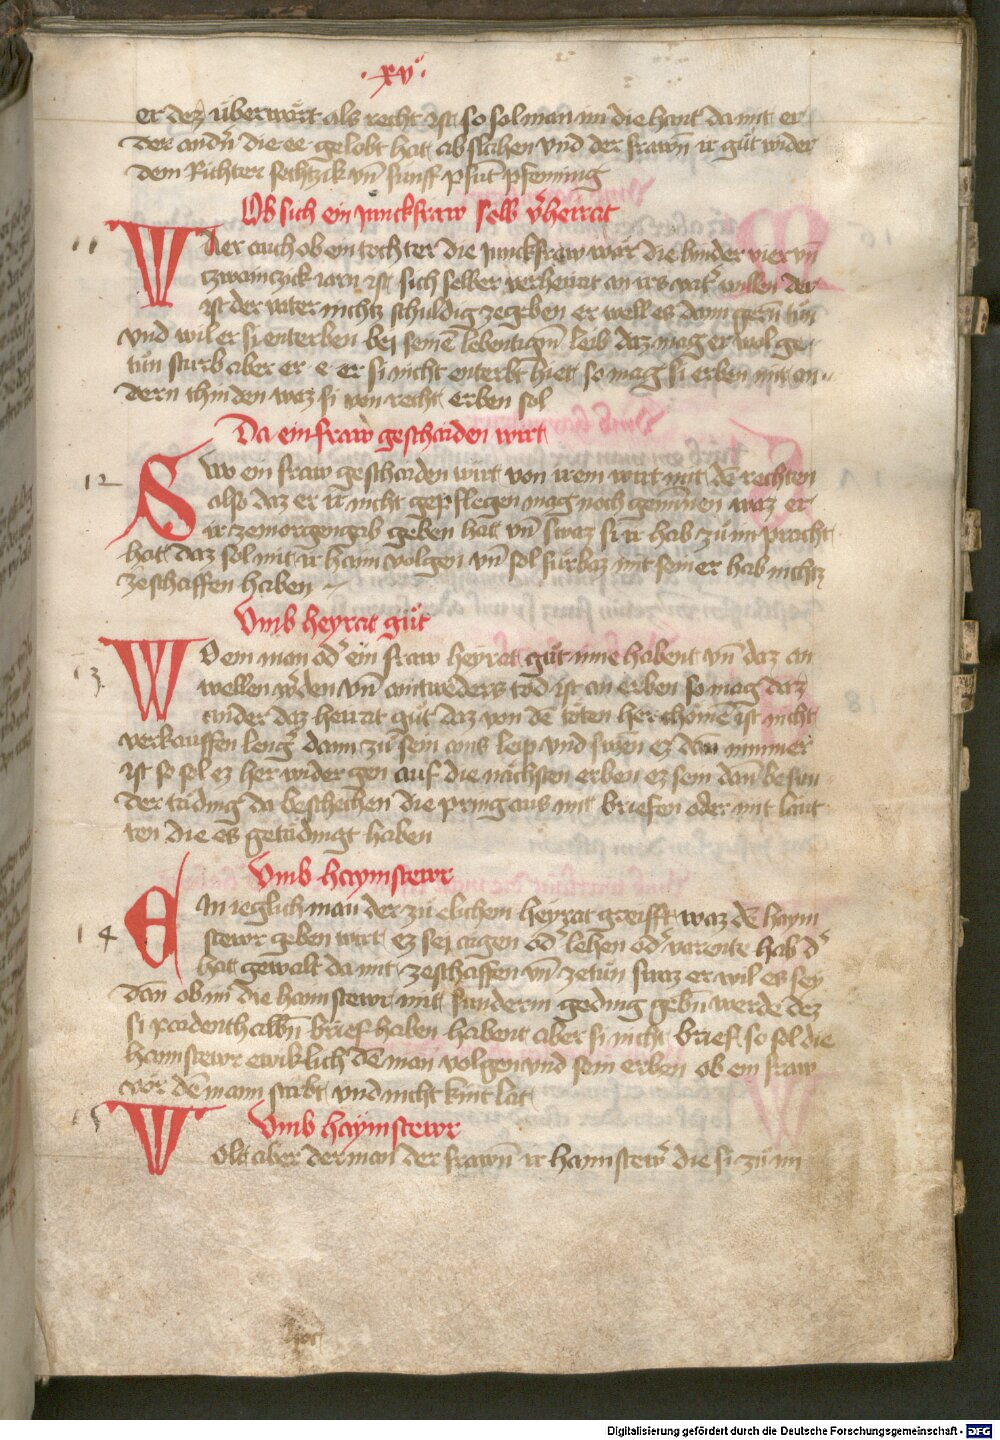 ·xv·
er dez überwürt als recht ist so sol man im die hant da mit er
der andn̄ die ee gelobt hat ab slahen vnd der frawn̄ ir gu̍t wider
dem Richter sechtzik vn̄ funff pfūt pfenning
Ob sich ein junckfraw selb v'heirat
11 Wer auch ob ein tochter die junckfraw wär die hinder vier vn̄
tzwainczik iarn ist sich selber verheirat an irs vat' willen der
ist der vater nichtz schuldig zegeben er well es dann gern̄ tün
vnd wil er si enterben bei seinē lebentigm̄ leib daz mag er wol ge
tün sturb aber er e er si nicht enterbt hiet so mag si erben mit an
dern chinden waz si von recht erben sol
Da ein fraw geschaiden wirt
12 Swo ein fraw geschaiden wirt von irem wirt mit dē rechten
also daz er ir nicht gepflegen mag noch gemīnen waz er
ir ze morgengab geben hat vn̄ swaz si ir hab zu̍ im pracht
hat daz sol mit ir haim volgen vn̄ sol fürbaz mit seiner hab nichtz
zeschaffen haben
Vmb heyrat gu̍t
13. Wem man od' ein fraw heyrat gu̍t inne habent vn̄ daz an
wellen w'den vn̄ aintweders tod ist an erben so mag daz
ander daz heyrat gu̍t daz von dē toten her chomē ist nicht
verkauffen leng' dann zu̍ sein ains leip vnd swen ez dan̄ nimmer
ist so sol ez her wider gen auf die nächsten erben ez sein dan̄ besun
der täding da beschechen die pring aus mit briefen oder mit laut
ten die es getädingt haben
Vmb haymstewr
14 Ein ieglich man der zu̍ elichem heyrat greifft waz dē haym
stewr geben wirt ez sei aigen od' lehen od' varente hab d'
hat gewalt da mit zeschaffen vn̄ zetün swaz er wil es sey
dan̄ ob im die haimstewr mit sunderm geding gebn̄ werde dez
si paidenthalbn̄ brief haben habent aber si nicht brief so sol die
haimstewr ewiklich dē man volgen vnd sein erben ob ein fraw
vor dē mann stirbt vnd nicht kint lat
Vmb haymstewr
15 Wolt aber der man der frawn̄ ir haimstew' die si zu̍ im